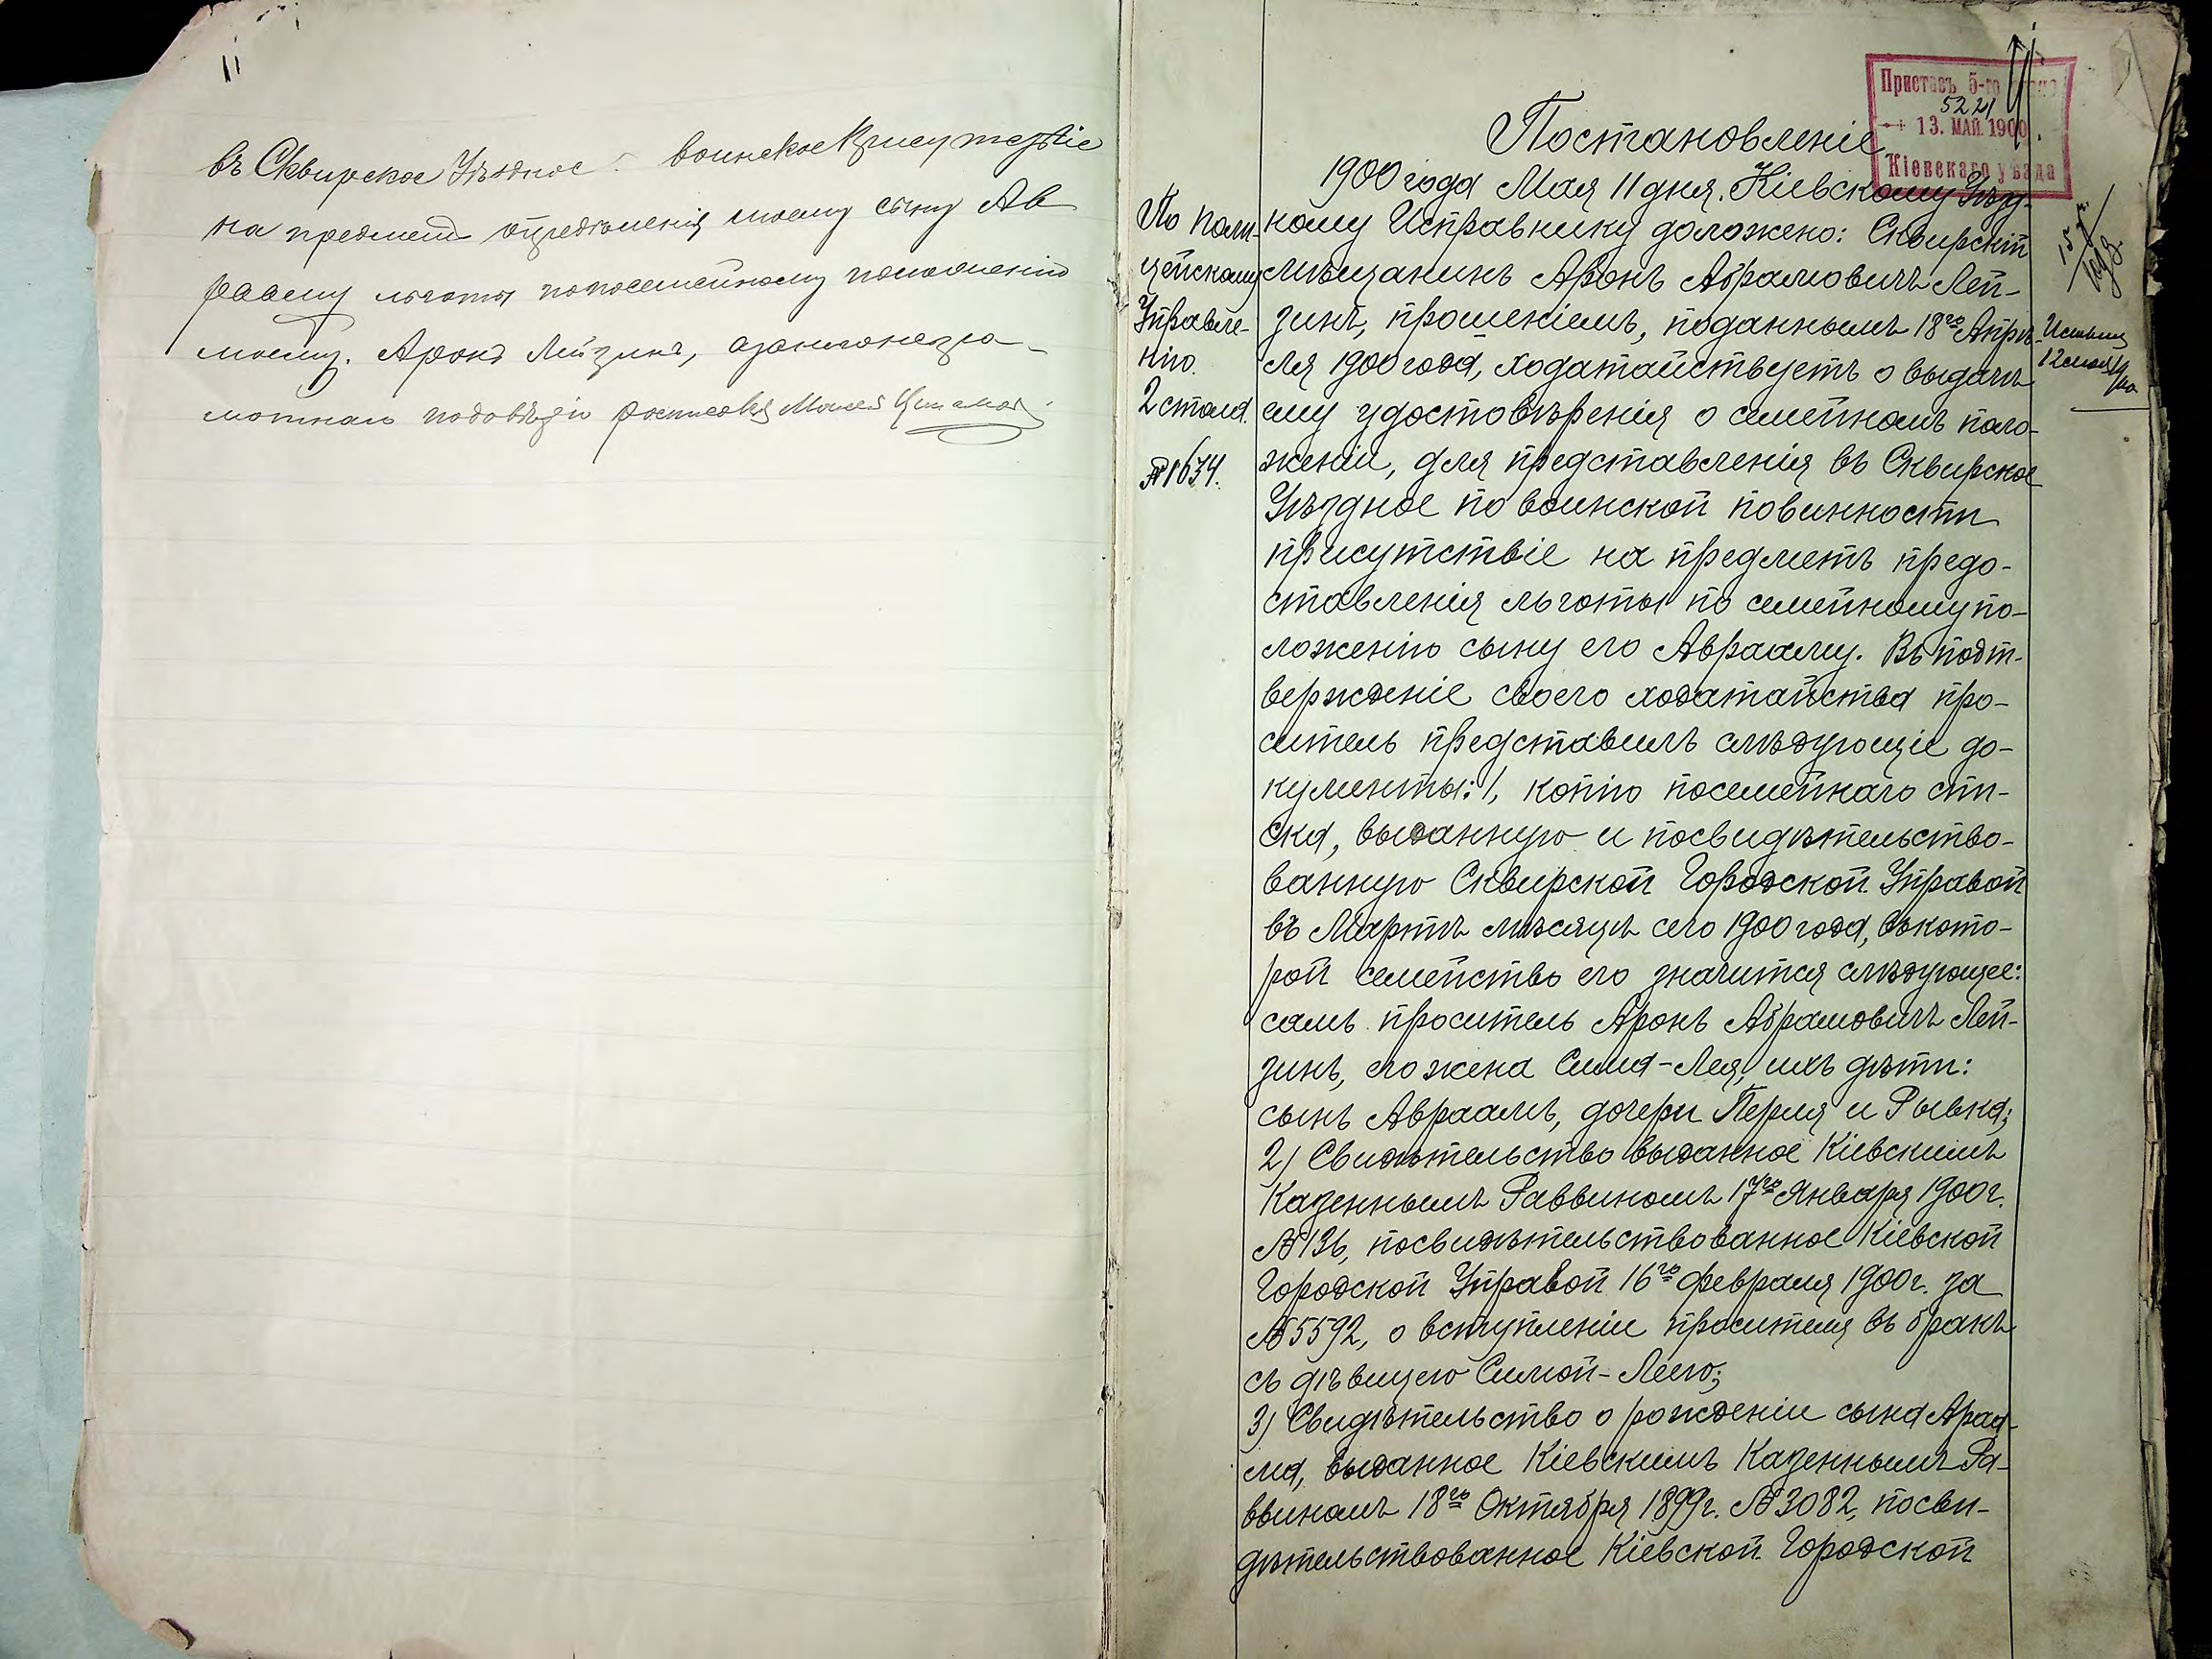 въ Сквирское Уѣздное воинское Присутствіе
на предметъ опредѣленія моему сыну Ав
рааму льготы по посемейному положенію
моему. Аронъ Лейзинъ, а за него негра-
мотнаго по довѣрію росписався Мошко
Приставъ 5-го стана
5221
13. МАЙ. 1900
Кіевскаго уѣзда
Постановленіе
1900 года Мая 11 дня. Кіевскому Уѣзд-
ному Исправнику доложено: Сквирскій
мѣщанинъ Аронъ Абрамовичъ Лей-
зинъ, прошеніемъ, поданнымъ 18го Апрѣ-
ля 1900 года, ходатайствуетъ о выдачѣ
ему удостовѣренія о семейномъ поло-
женіи, для представленія въ Сквирское
Уѣздное по воинской повинности
присутствіе на предметъ предо-
ставленія льготы по семейному по-
ложенію сыну его Аврааму. Въ подт-
вержденіе своего ходатайства про-
ситель представилъ слѣдующіе до-
кументы: 1, копію посемейнаго спи-
ска, выданную и посвидѣтельство-
ванную Сквирской Городской Управой
въ Мартѣ мѣсяцѣ сего 1900 года, въ кото-
рой семейство его значится слѣдующее:
самъ проситель Аронъ Абрамовичъ Лей-
зинъ, его жена Сима-Лея, ихъ дѣти:
сынъ Авраамъ, дочери Перля и Рывка;
2) Свидѣтельство выданное Кіевскимъ
Казеннымъ Раввиномъ 17го Января 1900 г.
№ 136, посвидѣтельствованное Кіевской
Городской Управой 16го февраля 1900 г. за
№ 5592, о вступленіи просителя въ бракъ
съ дѣвицею Симой-Леею;
3) Свидѣтельство о рожденіи сына Араа-
ма, выданное Кіевскимъ Казеннымъ Ра-
ввиномъ 18го Октября 1899 г. № 3082, посви-
дѣтельствованное Кіевской Городской
По поли-
цейскому
Управле-
нію.
2 стола.
№ 1634.